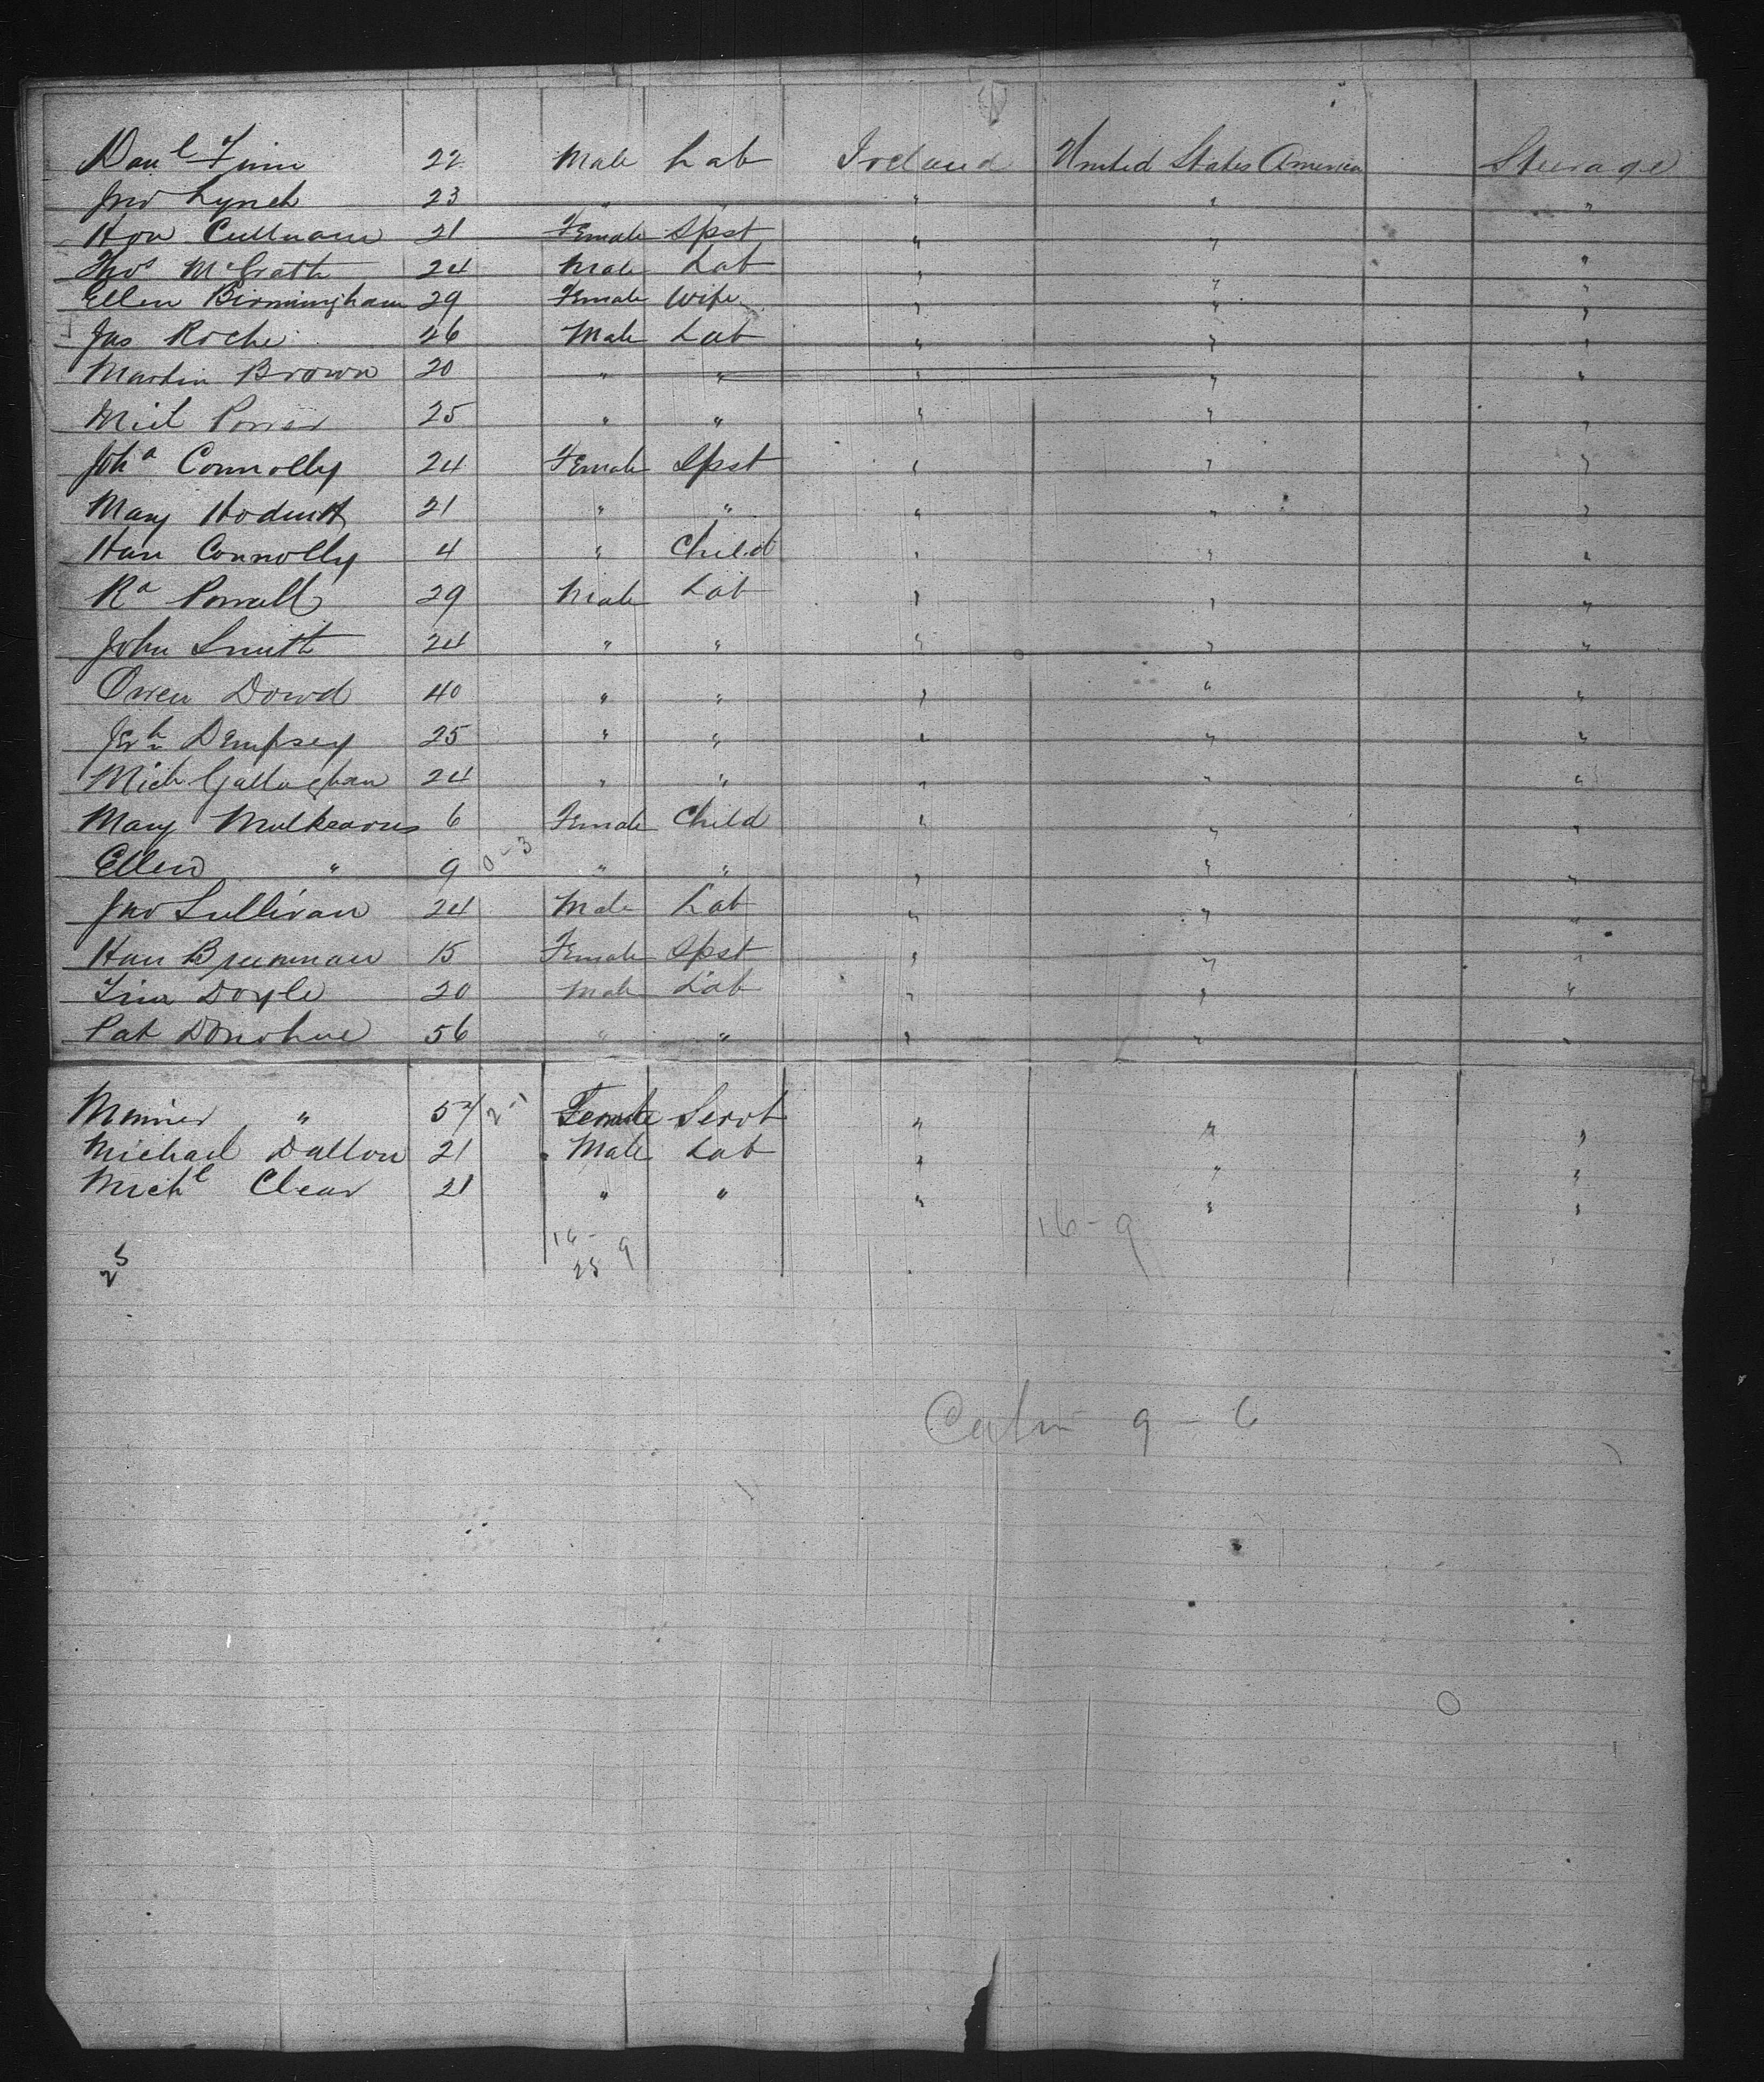 Danl Finn 22 Male Lab Ireland United States America Steerage
Jno Lynch 23 " " " " "
Hon Cullinane 21 Female Spst " " "
Thos McGrath 24 Male Lab " " "
Ellen Birmingham 29 Female Wife " " "
Jas Roche 26 Male Lab " " "
Martin Brown 20 " " " " "
Mich Power 25 " " " " "
Joha Connolly 24 Female Spst " " "
Mary 21 " " " " "
Han Connolly 4 " Child " " "
Ra Powell 29 Male Lab " " "
John Smith 24 " " " " "
Owen Dowd 40 " " " " "
Jerh Dempsey 25 " " " " "
Mich Gallaghan 24 " " " " "
Mary Mulkearns 6 Female Child " " "
Ellen " 9 0-3 " " " " "
Jno Sullivan 24 Male Lab " " "
Han Brennan 15 Female Spst " " "
Tim Doyle 20 Male Lab " " "
Pat Donohue 56 " " " " "
" 54 2-1 Female Servt " " "
Michael Dalton 21 Male Lab " " "
Michl Clear 21 " " " " "
16-9 16-9
25 25
9-6